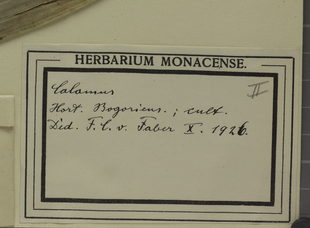 HERBARIUM MONACENSE.
II
Calamus
Hort. Bogoriens.; cult.
Ded. F. C. v. Faber X. 1926.